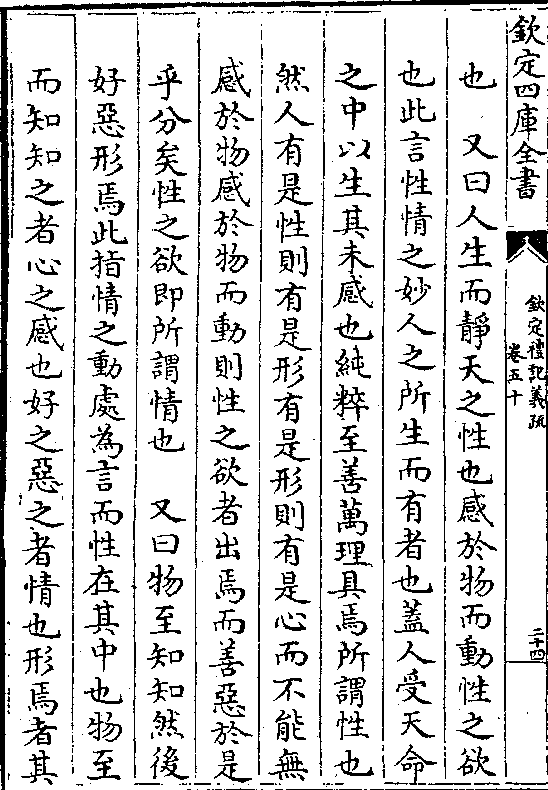 欽定四庫全書
欽定禮記義疏
卷五十
二十四
也　又曰人生而靜天之性也感於物而動性之欲
也此言性情之妙人之所生而有者也蓋人受天命
之中以生其未感也純粹至善萬理具焉所謂性也
然人有是性則有是形有是形則有是心而不能無
感於物感於物而動則性之欲者出焉而善惡於是
乎分矣性之欲即所謂情也　又曰物至知知然後
好惡形焉此指情之動處為言而性在其中也物至
而知知之者心之感也好之惡之者情也形焉者其